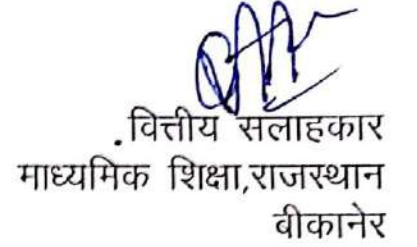 वित्तीय सलाहकार
माध्यमिक शिक्षा,राजस्थान
बीकानेर